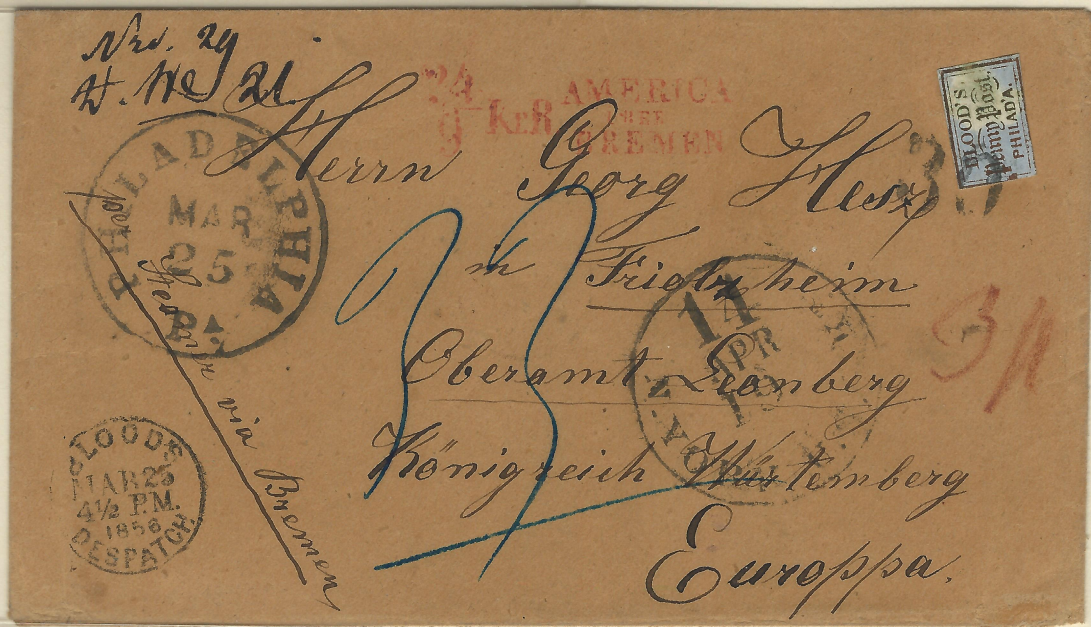 Nro. 29
24
9 KER
AMERICA
BREMEN
BLOOD'S
Penny Post.
PHILAD'A.
PHILADELPHIA
MAR
25
PA.
Herrn Georg Hesz
in Friolzheim
Oberamt Leonberg
Königreich Würtemberg
Europpa.
per Steamer via Bremen
33
11
APR
N. YORK
BLOOD'S
MAR 25
4½ P.M.
1856
DESPATCH